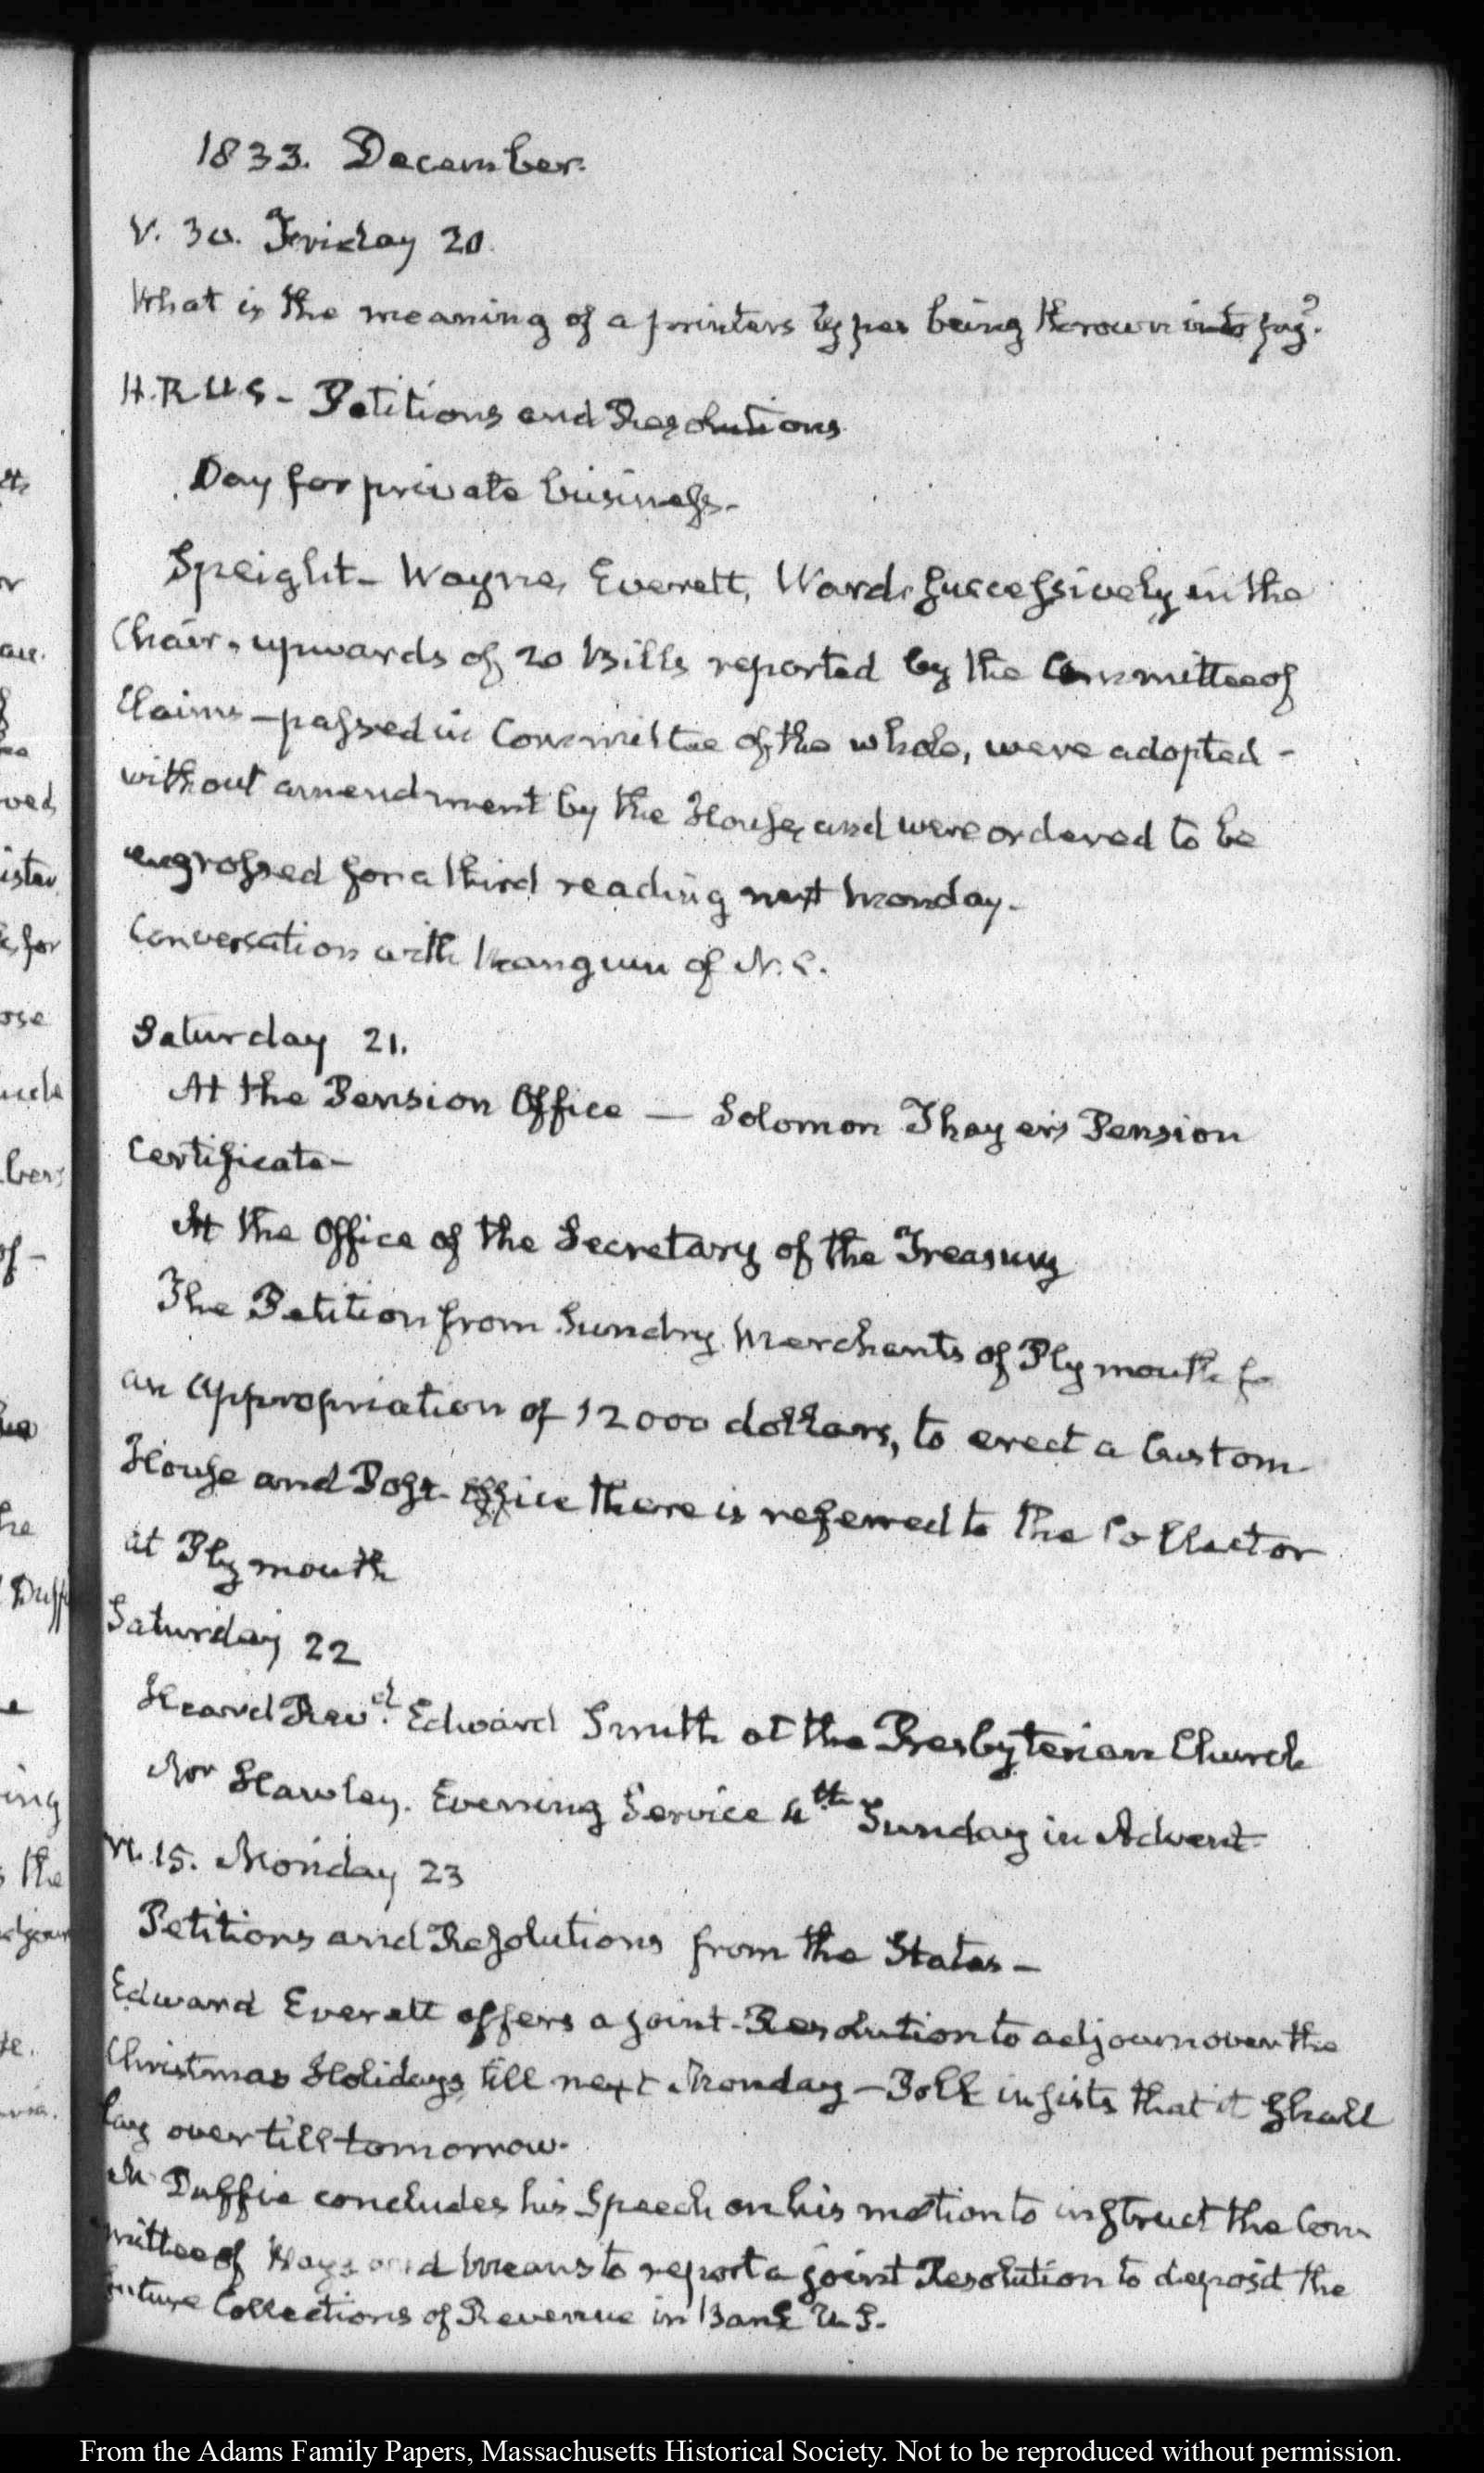 1833. December.
V. 30. Friday 20.
What is the meaning of a printers types being thrown into py?
H. R. U S - Petitions and Resolutions
Day for private business -
Speight - Wayne, Everett, Ward, successively in the
Chair, upwards of 20 Bills reported by the Committee of
Claims - passed in Committee of the whole, were adopted -
without amendment by the House, and were ordered to be
engrossed for a third reading next Monday -
Conversation with Mangum of N. C.
Saturday 21.
At the Pension Office — Solomon Thayer's Pension
Certificate -
At the Office of the Secretary of the Treasury
The Petition from Sundry Merchants of Plymouth for
an appropriation of 12000 dollars, to erect a Custom
House and Post-Office there is referred to the Collector
at Plymouth
Saturday 22
Heard Revd. Edward Smith at the Presbyterian Church
Mr Hawley. Evening Service 4th Sunday in Advent
VI. 15. Monday 23
Petitions and Resolutions from the States -
Edward Everett offers a joint Resolution to adjourn over the
Christmas Holidays till next Monday - Polk insists that it shall
lay over till tomorrow.
Mc Duffie concludes his Speech on his motion to instruct the Com
mittee of Ways and Means to report a joint Resolution to deposit the
future Collections of Revenue in Bank U. S.
From the Adams Family Papers, Massachusetts Historical Society. Not to be reproduced without permission.